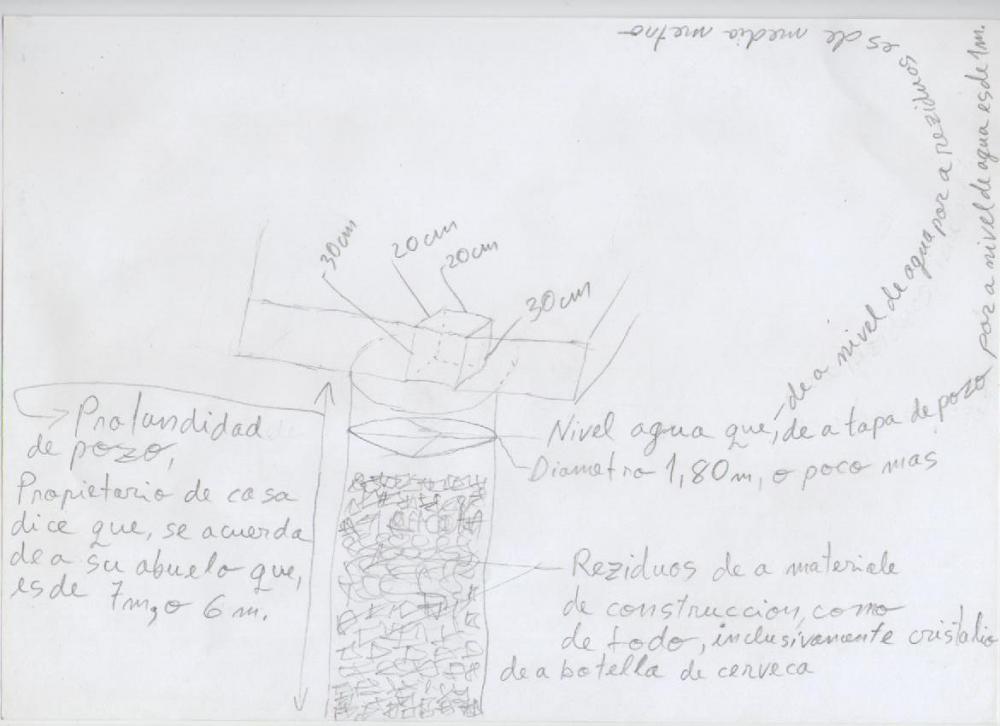 es de media metro
30cm
20cm
20cm
30cm
Profundidad
de pozo,
Propietario de casa
dice que, se acuerda
de a su abuelo que,
es de 7m, o 6 m.
Nivel agua que, de a tapa de pozo por a nivel de agua es de 1m.
, de a nivel de agua por a reziduos
Diametro 1,80m, o poco mas
Reziduos de a materiale
de construccion, como
de todo, inclusivamente cristalio
de a botella de cerveca